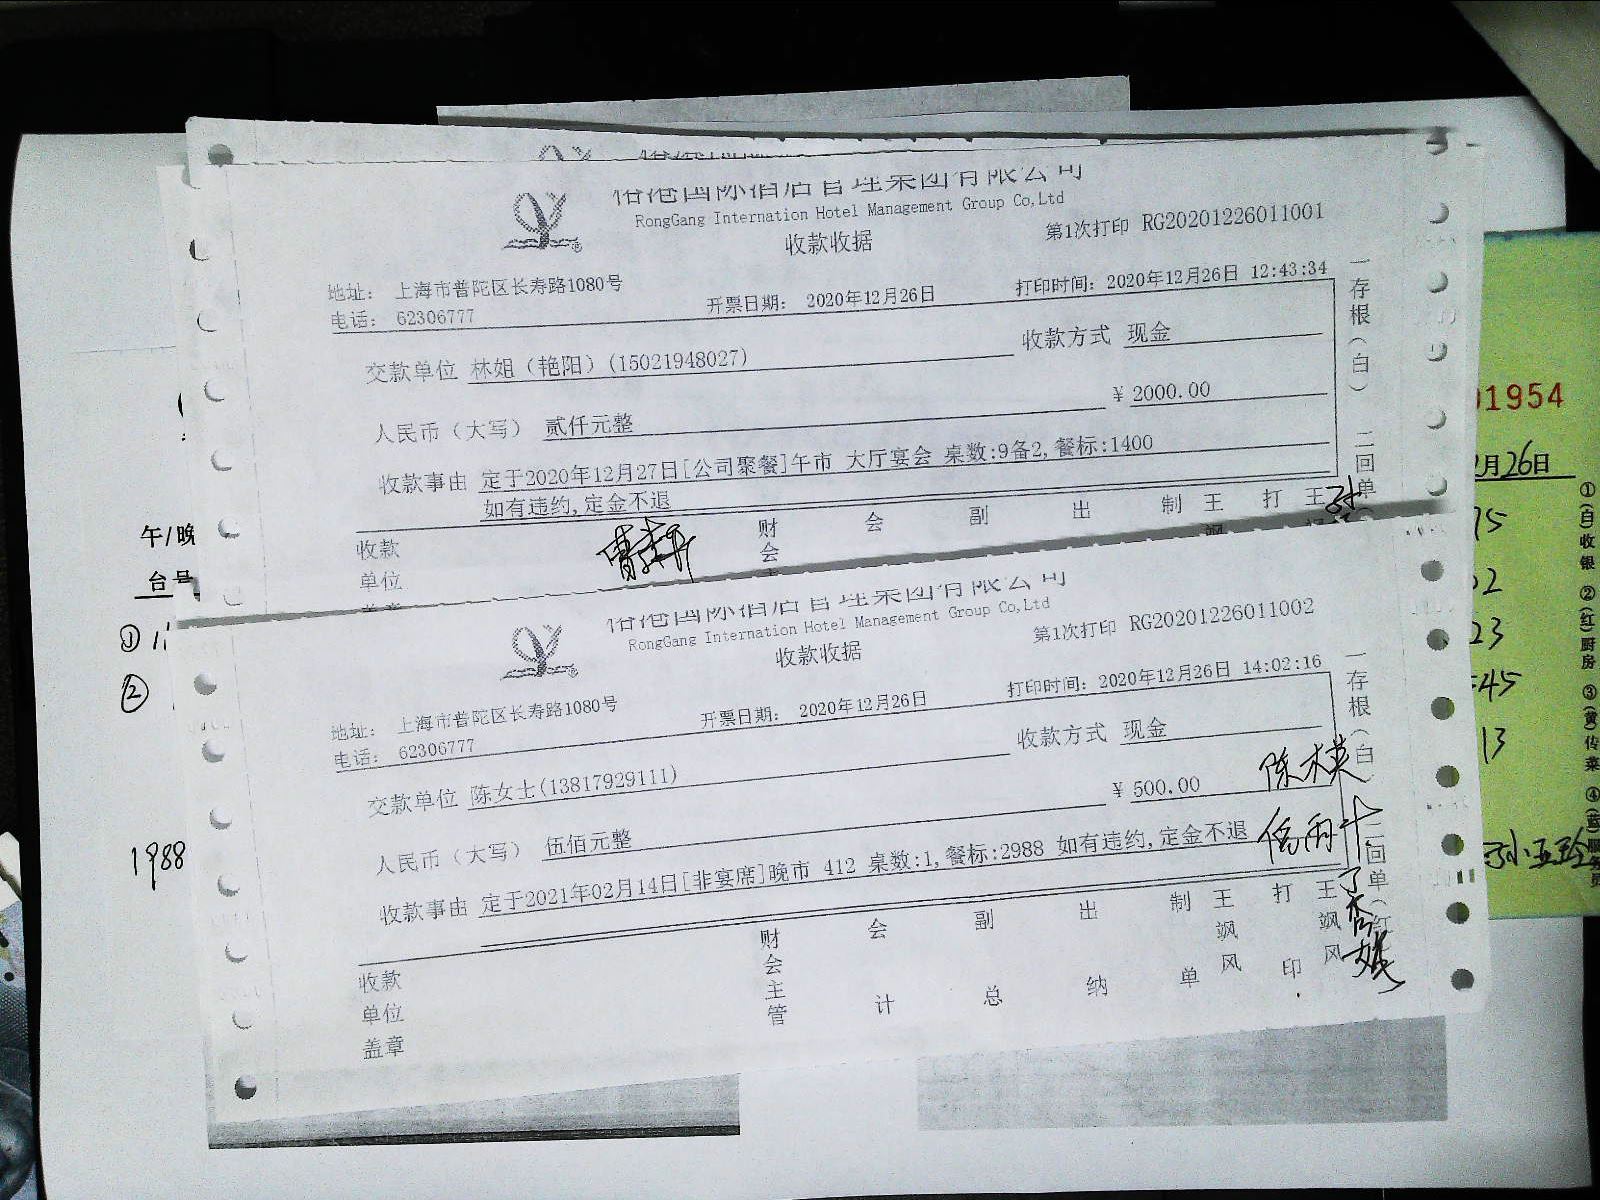 裕港国际酒店管理集团有限公司
RongGang Internation Hotel Management Group Co,Ltd
收款收据
第1次打印 RG20201226011001
地址： 上海市普陀区长寿路1080号
电话： 62306777
开票日期： 2020年12月26日
打印时间：2020年12月26日 12:43:34
交款单位 林姐（艳阳）(15021948027)
收款方式 现金
人民币（大写） 贰仟元整
¥ 2000.00
收款事由 定于2020年12月27日[公司聚餐]午市 大厅宴会 桌数:9备2,餐标:1400
如有违约,定金不退
收款
单位
财会
会 副 出 制 王 打 王
一存根（白） 二回单
裕港国际酒店管理集团有限公司
RongGang Internation Hotel Management Group Co,Ltd
收款收据
第1次打印 RG20201226011002
地址： 上海市普陀区长寿路1080号
电话： 62306777
开票日期： 2020年12月26日
打印时间：2020年12月26日 14:02:16
交款单位 陈女士(13817929111)
收款方式 现金
人民币（大写） 伍佰元整
¥ 500.00
收款事由 定于2021年02月14日[非宴席]晚市 412 桌数:1,餐标:2988 如有违约,定金不退
收款单位盖章
财会主管
会计
副总
出纳
制单
王飒风
打印
王飒风
一存根（白） 二回单（红
午/晚
台号
①
②
1988
01954
月26日
①(白)收银 ②(红)厨房 ③(黄)传菜 ④(蓝)服务员